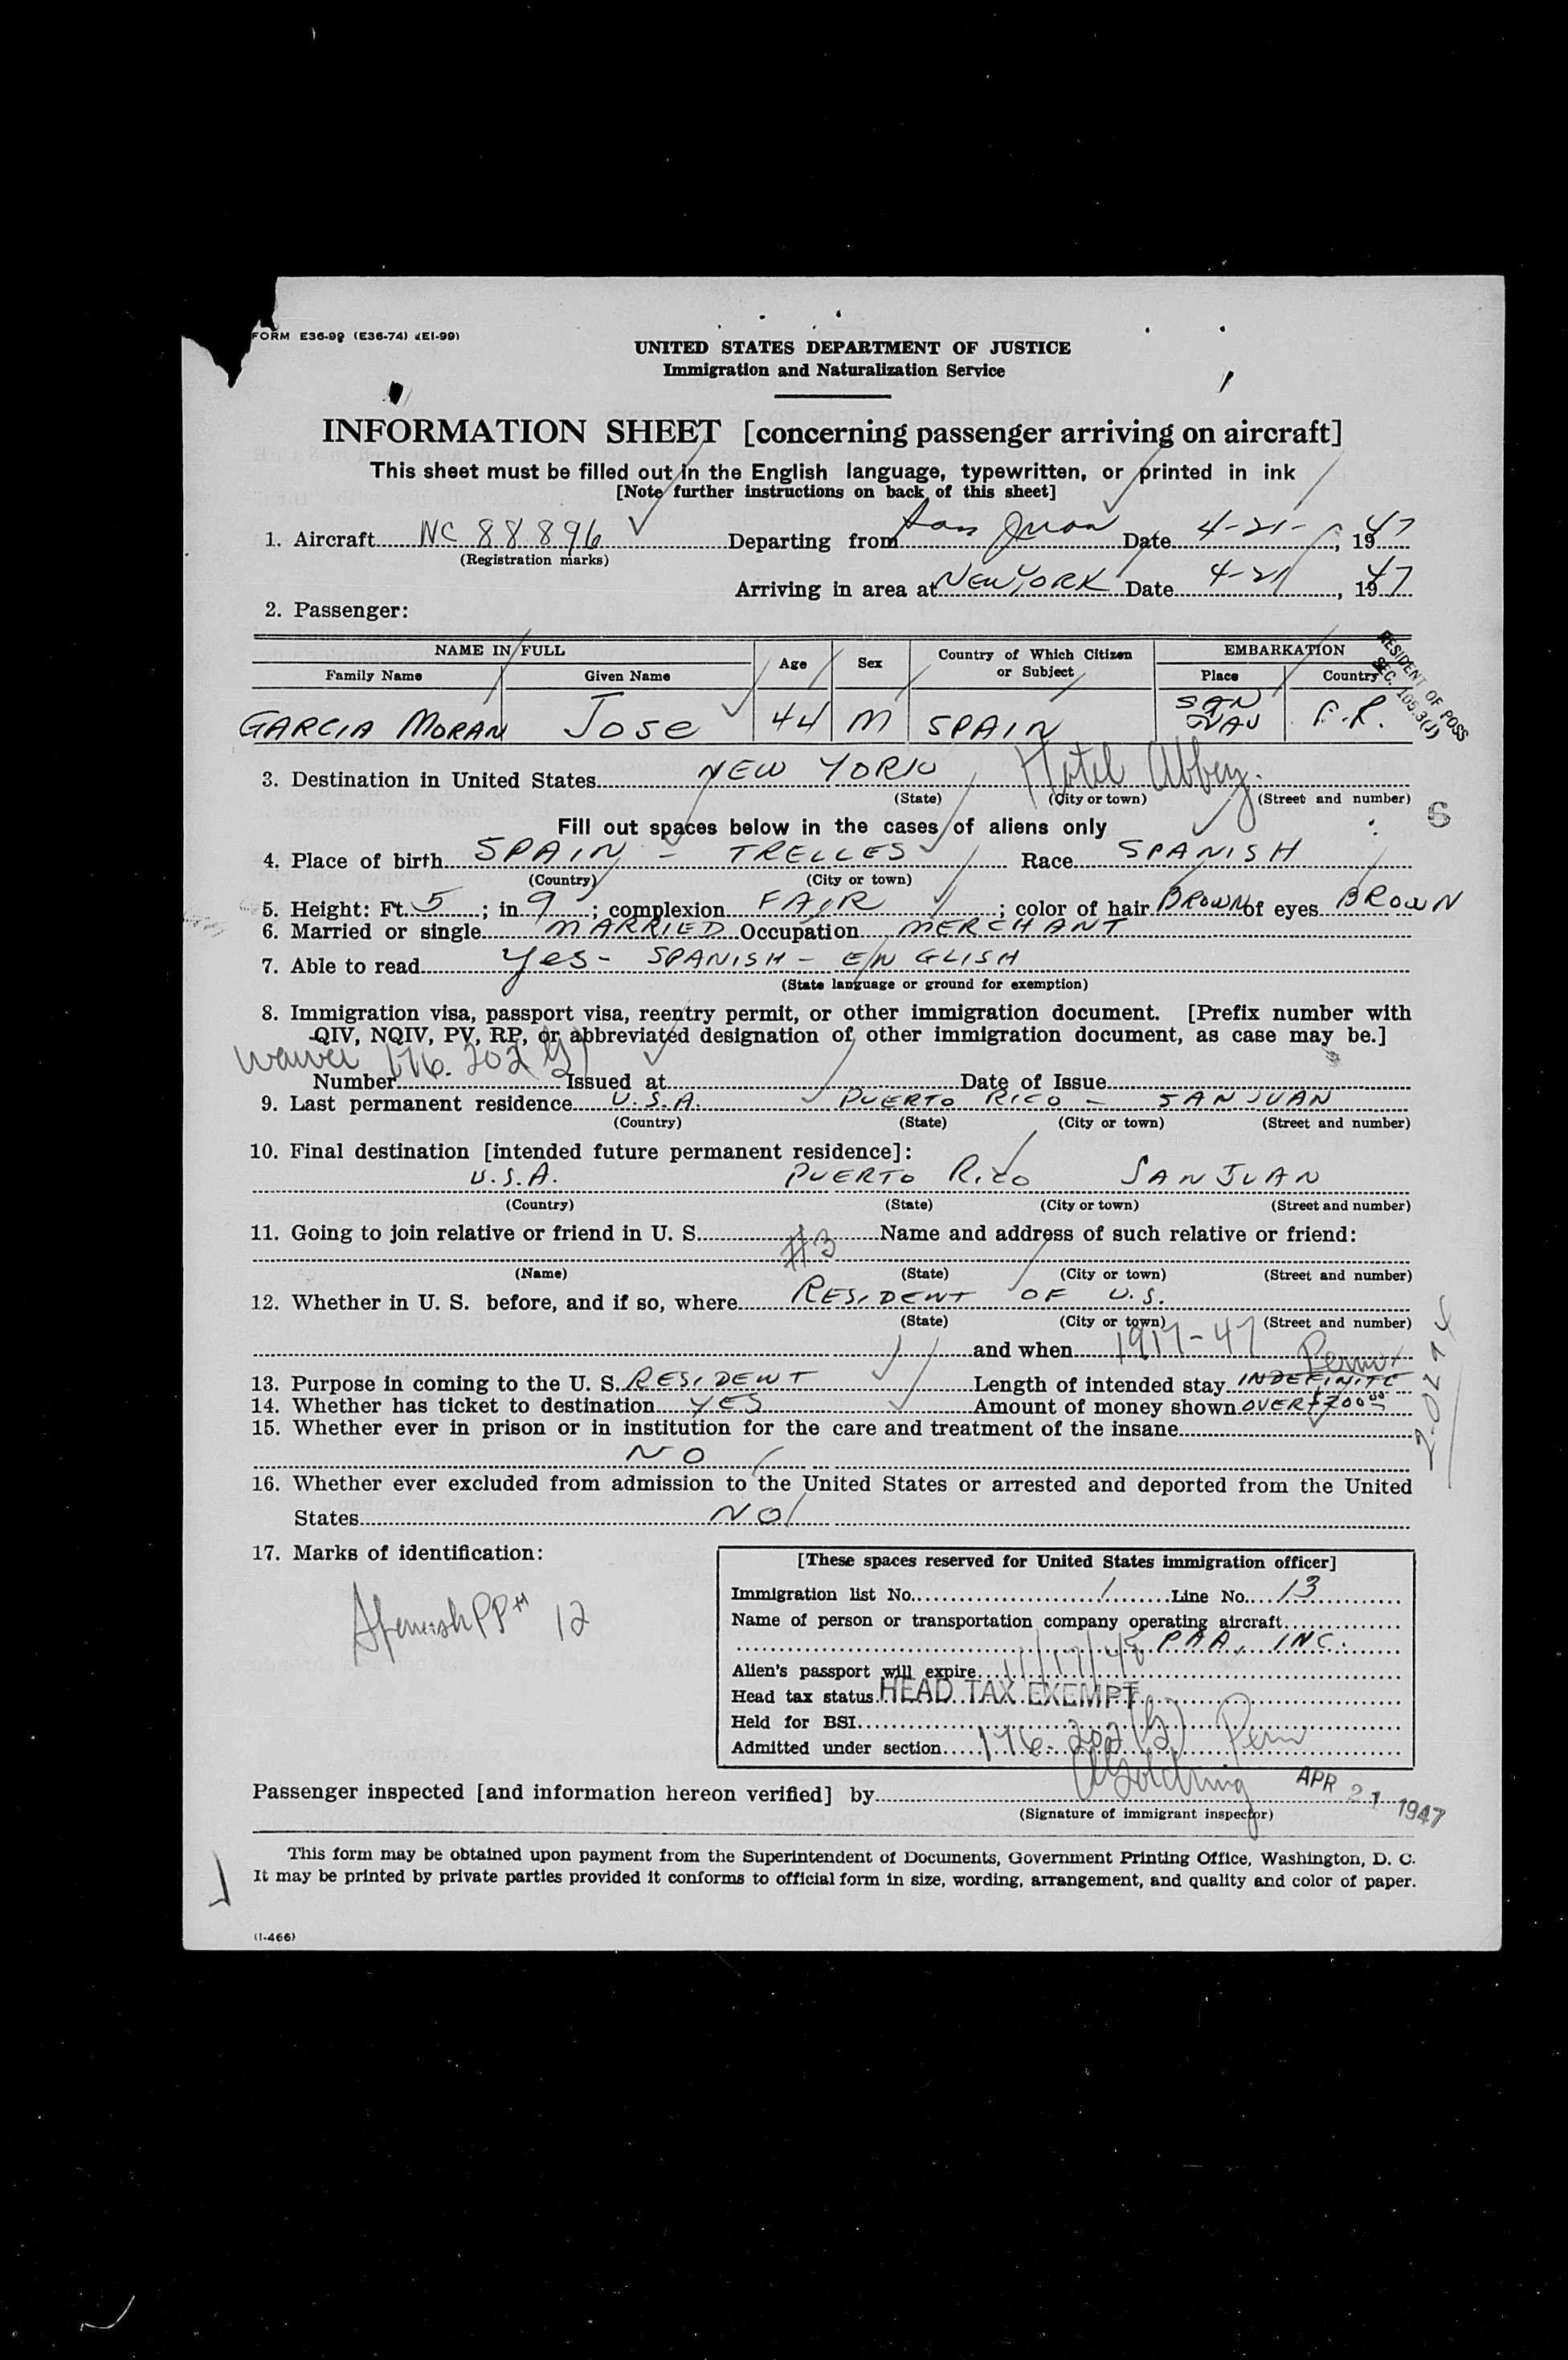 FORM E36-99 (E36-74) (EI-99)
UNITED STATES DEPARTMENT OF JUSTICE
Immigration and Naturalization Service
INFORMATION SHEET [concerning passenger arriving on aircraft]
This sheet must be filled out in the English language, typewritten, or printed in ink
[Note further instructions on back of this sheet]
1. Aircraft NC 88896 Departing from San Juan Date 4-21-, 1947
(Registration marks)
Arriving in area at NEW YORK Date 4-21, 1947
2. Passenger:
NAME IN FULL Age Sex Country of Which Citizen or Subject EMBARKATION
Family Name Given Name Place Country
RESIDENT OF POSS
SEC. 106.3(J)
GARCIA MORAN Jose 44 M SPAIN SAN JUAN P.R.
3. Destination in United States NEW YORK Hotel Abbey.
(State) (City or town) (Street and number)
6
Fill out spaces below in the cases of aliens only
4. Place of birth SPAIN - TRELLES Race SPANISH
(Country) (City or town)
5. Height: Ft. 5; in 9; complexion FAIR; color of hair BROWN of eyes BROWN
6. Married or single MARRIED Occupation MERCHANT
7. Able to read Yes- SPANISH - ENGLISH
(State language or ground for exemption)
8. Immigration visa, passport visa, reentry permit, or other immigration document. [Prefix number with
QIV, NQIV, PV, RP, or abbreviated designation of other immigration document, as case may be.]
Waiver 176.202
Number Issued at Date of Issue
9. Last permanent residence U.S.A. PUERTO RICO - SAN JUAN
(Country) (State) (City or town) (Street and number)
10. Final destination [intended future permanent residence]:
U.S.A. PUERTO RICO SAN JUAN
(Country) (State) (City or town) (Street and number)
11. Going to join relative or friend in U. S. #3 Name and address of such relative or friend:
(Name) (State) (City or town) (Street and number)
12. Whether in U. S. before, and if so, where RESIDENT OF U.S.
(State) (City or town) (Street and number)
and when 1917-47
Perm
13. Purpose in coming to the U. S. RESIDENT Length of intended stay INDEFINITE
14. Whether has ticket to destination YES Amount of money shown OVER
15. Whether ever in prison or in institution for the care and treatment of the insane
NO
16. Whether ever excluded from admission to the United States or arrested and deported from the United
States NO
17. Marks of identification:
Spanish PP# 12
[These spaces reserved for United States immigration officer]
Immigration list No. 1 Line No. 13
Name of person or transportation company operating aircraft
PAA, INC.
Alien's passport will expire
Head tax status HEAD TAX EXEMPT
Held for BSI
Admitted under section 176.202 Perm
Passenger inspected [and information hereon verified] by APR 21 1947
(Signature of immigrant inspector)
This form may be obtained upon payment from the Superintendent of Documents, Government Printing Office, Washington, D. C.
It may be printed by private parties provided it conforms to official form in size, wording, arrangement, and quality and color of paper.
(I-466)